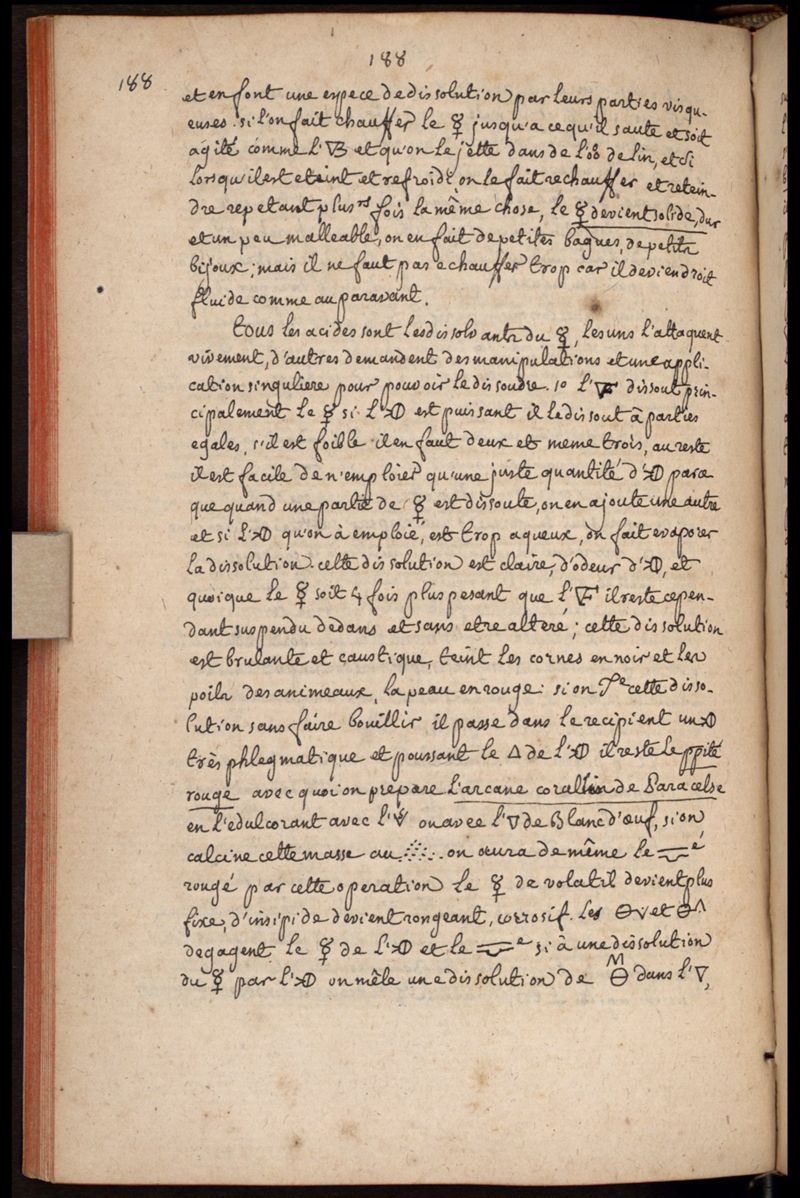 188
188
et en font une espece de dissolution par leurs parties visqu-
euses. si l'on fait chauffer le ☿ jusqu'a ce qu'il saute et soit
agité comme l' et qu'on le jette dans de l' de lin, et si
lorsqu'il est eteint et refroidi on le fait rechauffer et retein-
dre repetant plusrs fois la même chose, le ☿ devient solide, dur
et un peu malleable, on en fait de petites bagues, de petits
bijoux; mais il ne faut pas echauffer trop car il deviendroit
fluide comme auparavant.
tous les acides sont les dissolvants du ☿, les uns l'attaquent
vivement, d'autres demandent des manipulations et une appli-
cation singuliere pour pouvoir le dissoudre. 1o l' dissout prin-
cipalement le ☿ si l' est puissant il le dissout à parties
egales, s'il est foible il en faut deux et meme trois, au reste
il est facile de n'emploier qu'une juste quantité d' parce
que quand une partie de ☿ est dissoute, on en ajoute une autre
et si l' qu'on à emploié, est trop aqueux, on fait evaporer
la dissolution. cette dissolution est claire, d'odeur d', et
quoique le ☿ soit 4 fois plus pesant que l' il reste cepen-
dant suspendu dedans et sans etre alteré; cette dissolution
est brulante et caustique, teint les cornes en noir et les
poils des animeaux, la peau en rouge: si on cette disso-
lution sans faire bouillir il passe dans le recipient un
très phlegmatique et poussant le △ de l' il reste le ppité
rouge avec quoi on prepare l'arcane corallin de Paracelse
en l'edulcorant avec l' ou avec l'▽ de Blanc d'œuf, si on
calcine cette masse au on aura de même le
rougé par cette operation le ☿ de volatil devient plus
fixe, d'insipide devient rongeant, corrosif. Les et
degagent le ☿ de l' et le si à une dissolution
du ☿ par l' on mêle une dissolution de dans l'▽,